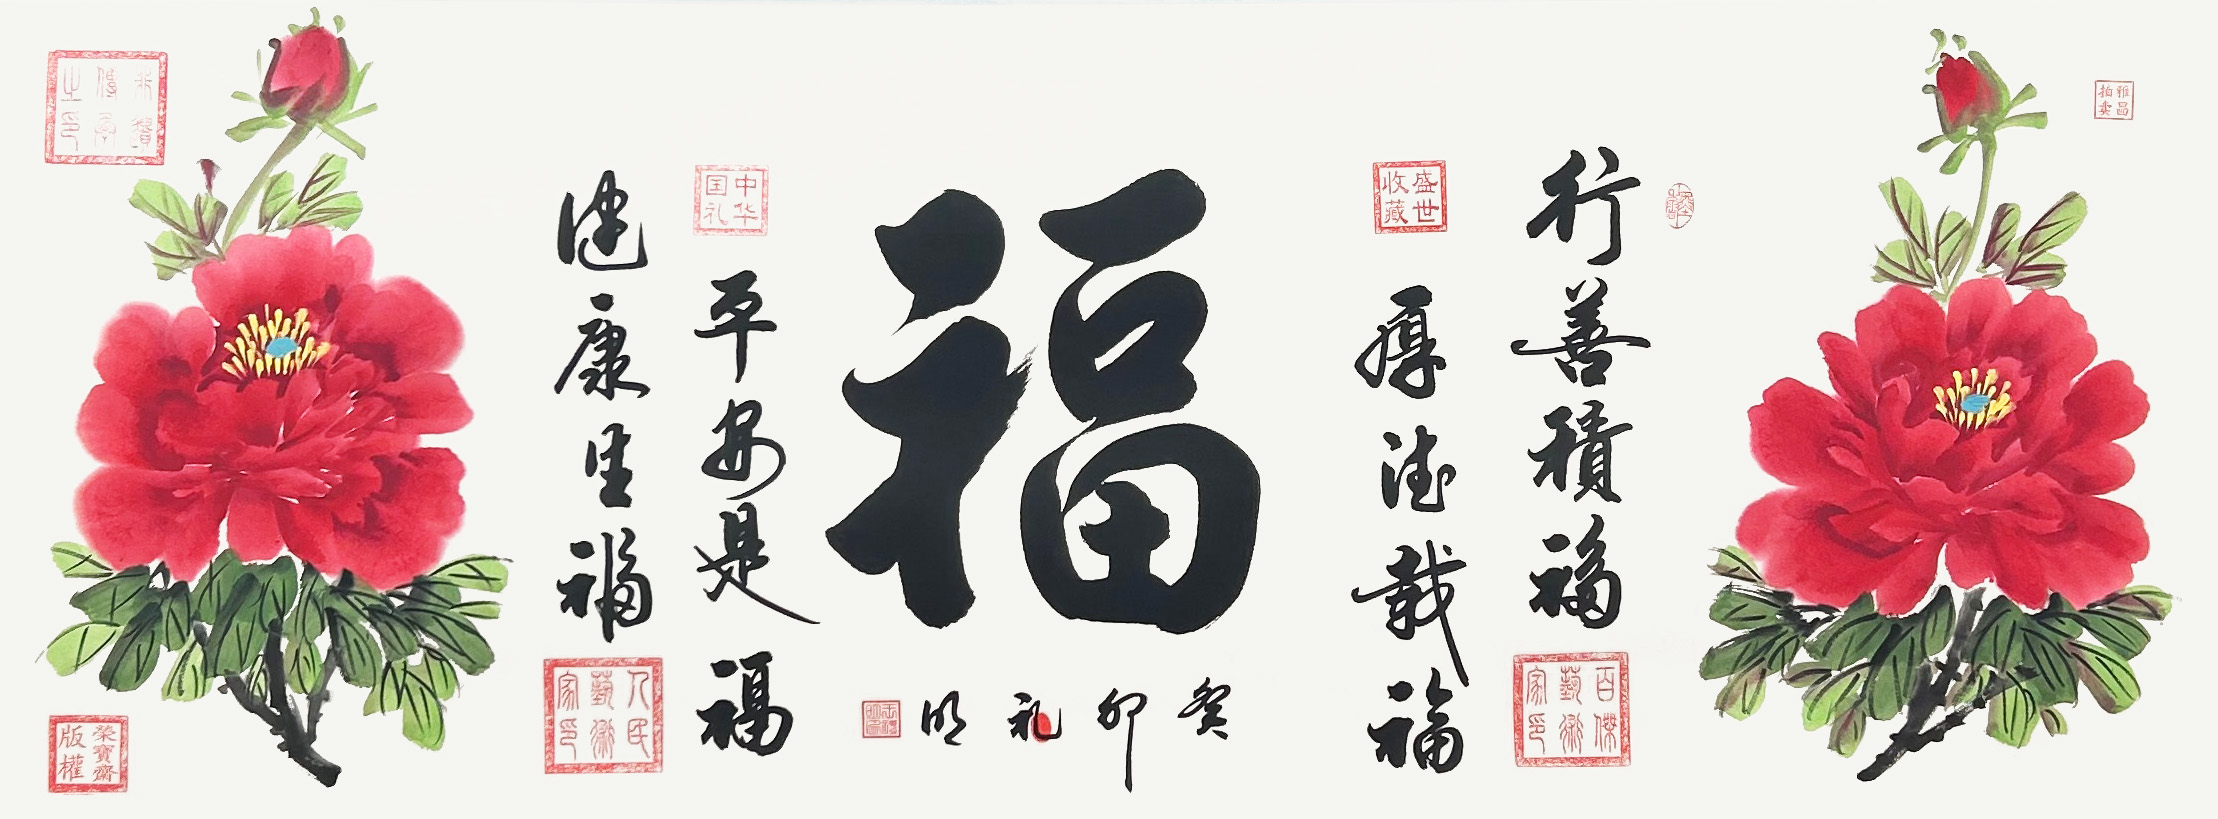 雅昌拍卖
行善積福
百傑藝術家印
盛世收藏
厚德載福
福
癸卯礼明
中华国礼
平安是福
健康生福
人民藝術家印
非遺傳承之印
榮寶齋版權